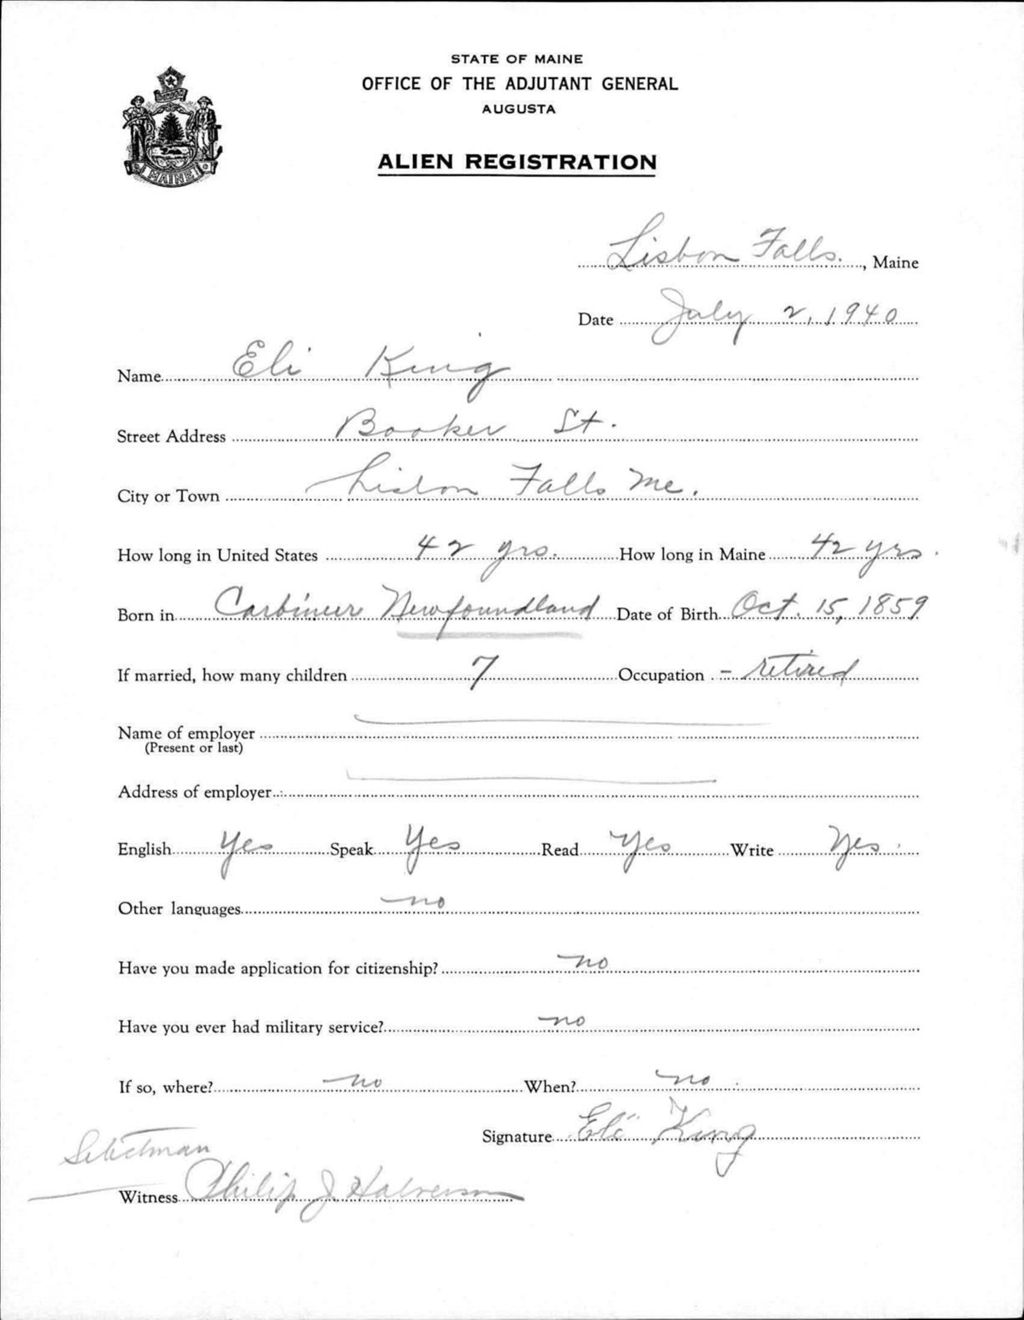 STATE OF MAINE
OFFICE OF THE ADJUTANT GENERAL
AUGUSTA
MAINE
ALIEN REGISTRATION
Lisbon Falls, Maine
Date July 2, 1940
Name Eli King
Street Address Booker St.
City or Town Lisbon Falls Me.
How long in United States 42 yrs. How long in Maine 42 yrs.
Born in Carbineer Newfoundland Date of Birth Oct. 15, 1859
If married, how many children 7 Occupation - retired
Name of employer
(Present or last)
Address of employer
English Yes Speak Yes Read Yes Write Yes.
Other languages no
Have you made application for citizenship? no
Have you ever had military service? no
If so, where? no When? no
Signature Eli King
Selectman
Witness Philip J Halverson